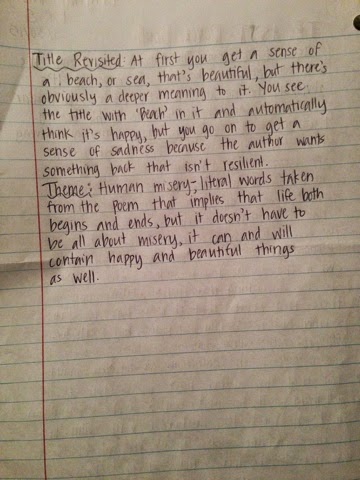 Title Revisited: At first you get a sense of
a beach, or sea, that's beautiful, but there's
obviously a deeper meaning to it. You see
the title with 'Beach' in it and automatically
think it's happy, but you go on to get a
sense of sadness because the author wants
something back that isn't resilient.
Theme: Human misery; literal words taken
from the poem that implies that life both
begins and ends, but it doesn't have to
be all about misery, it can and will
contain happy and beautiful things
as well.